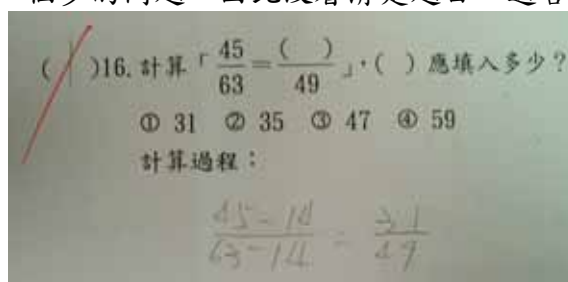 ( 1 )16. 計算「45/63=( )/49」,( ) 應填入多少?
① 31 ② 35 ③ 47 ④ 59
計算過程:
45-14/63-14 = 31/49